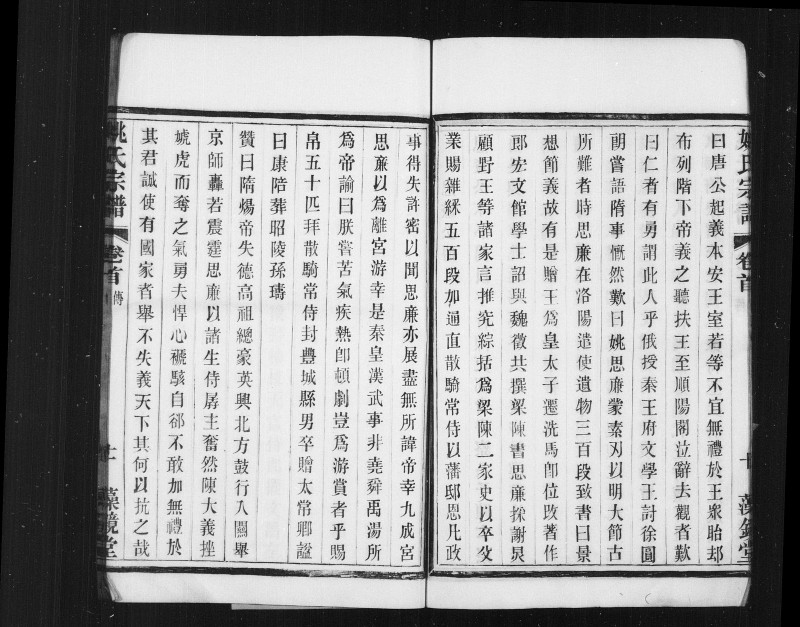 姚氏宗譜
卷首
十
藻鏡堂
曰唐公起義本安王室若等不宜無禮於王眾眙却
布列階下帝義之聽扶王至順陽閣泣辭去觀者歎
曰仁者有勇謂此人乎俄授秦王府文學王討徐圓
朗嘗語隋事慨然歎曰姚思廉蒙素刃以明大節古
所難者時思廉在洛陽遣使遺物三百段致書曰景
想節義故有是贈王為皇太子遷洗馬卽位改著作
郎宏文館學士詔與魏徵共撰梁陳書思廉採謝炅
顧野王等諸家言推究綜括為梁陳二家史以卒父
業賜雜綵五百段加通直散騎常侍以藩邸恩凡政
事得失許密以聞思廉亦展盡無所諱帝幸九成宮
思廉以為離宮游幸是秦皇漢武事非堯舜禹湯所
為帝諭曰朕嘗苦氣疾熱卽頓劇豈為游賞者乎賜
帛五十匹拜散騎常侍封豐城縣男卒贈太常卿諡
曰康陪葬昭陵孫璹
贊曰隋煬帝失德高祖總豪英興北方鼓行入關舉
京師轟若震霆思廉以諸生侍孱主奮然陳大義挫
虓虎而奪之氣勇夫悍心褫駭自郤不敢加無禮於
其君誠使有國家者舉不失義天下其何以抗之哉
姚氏宗譜
卷首
傳
十一
藻鏡堂